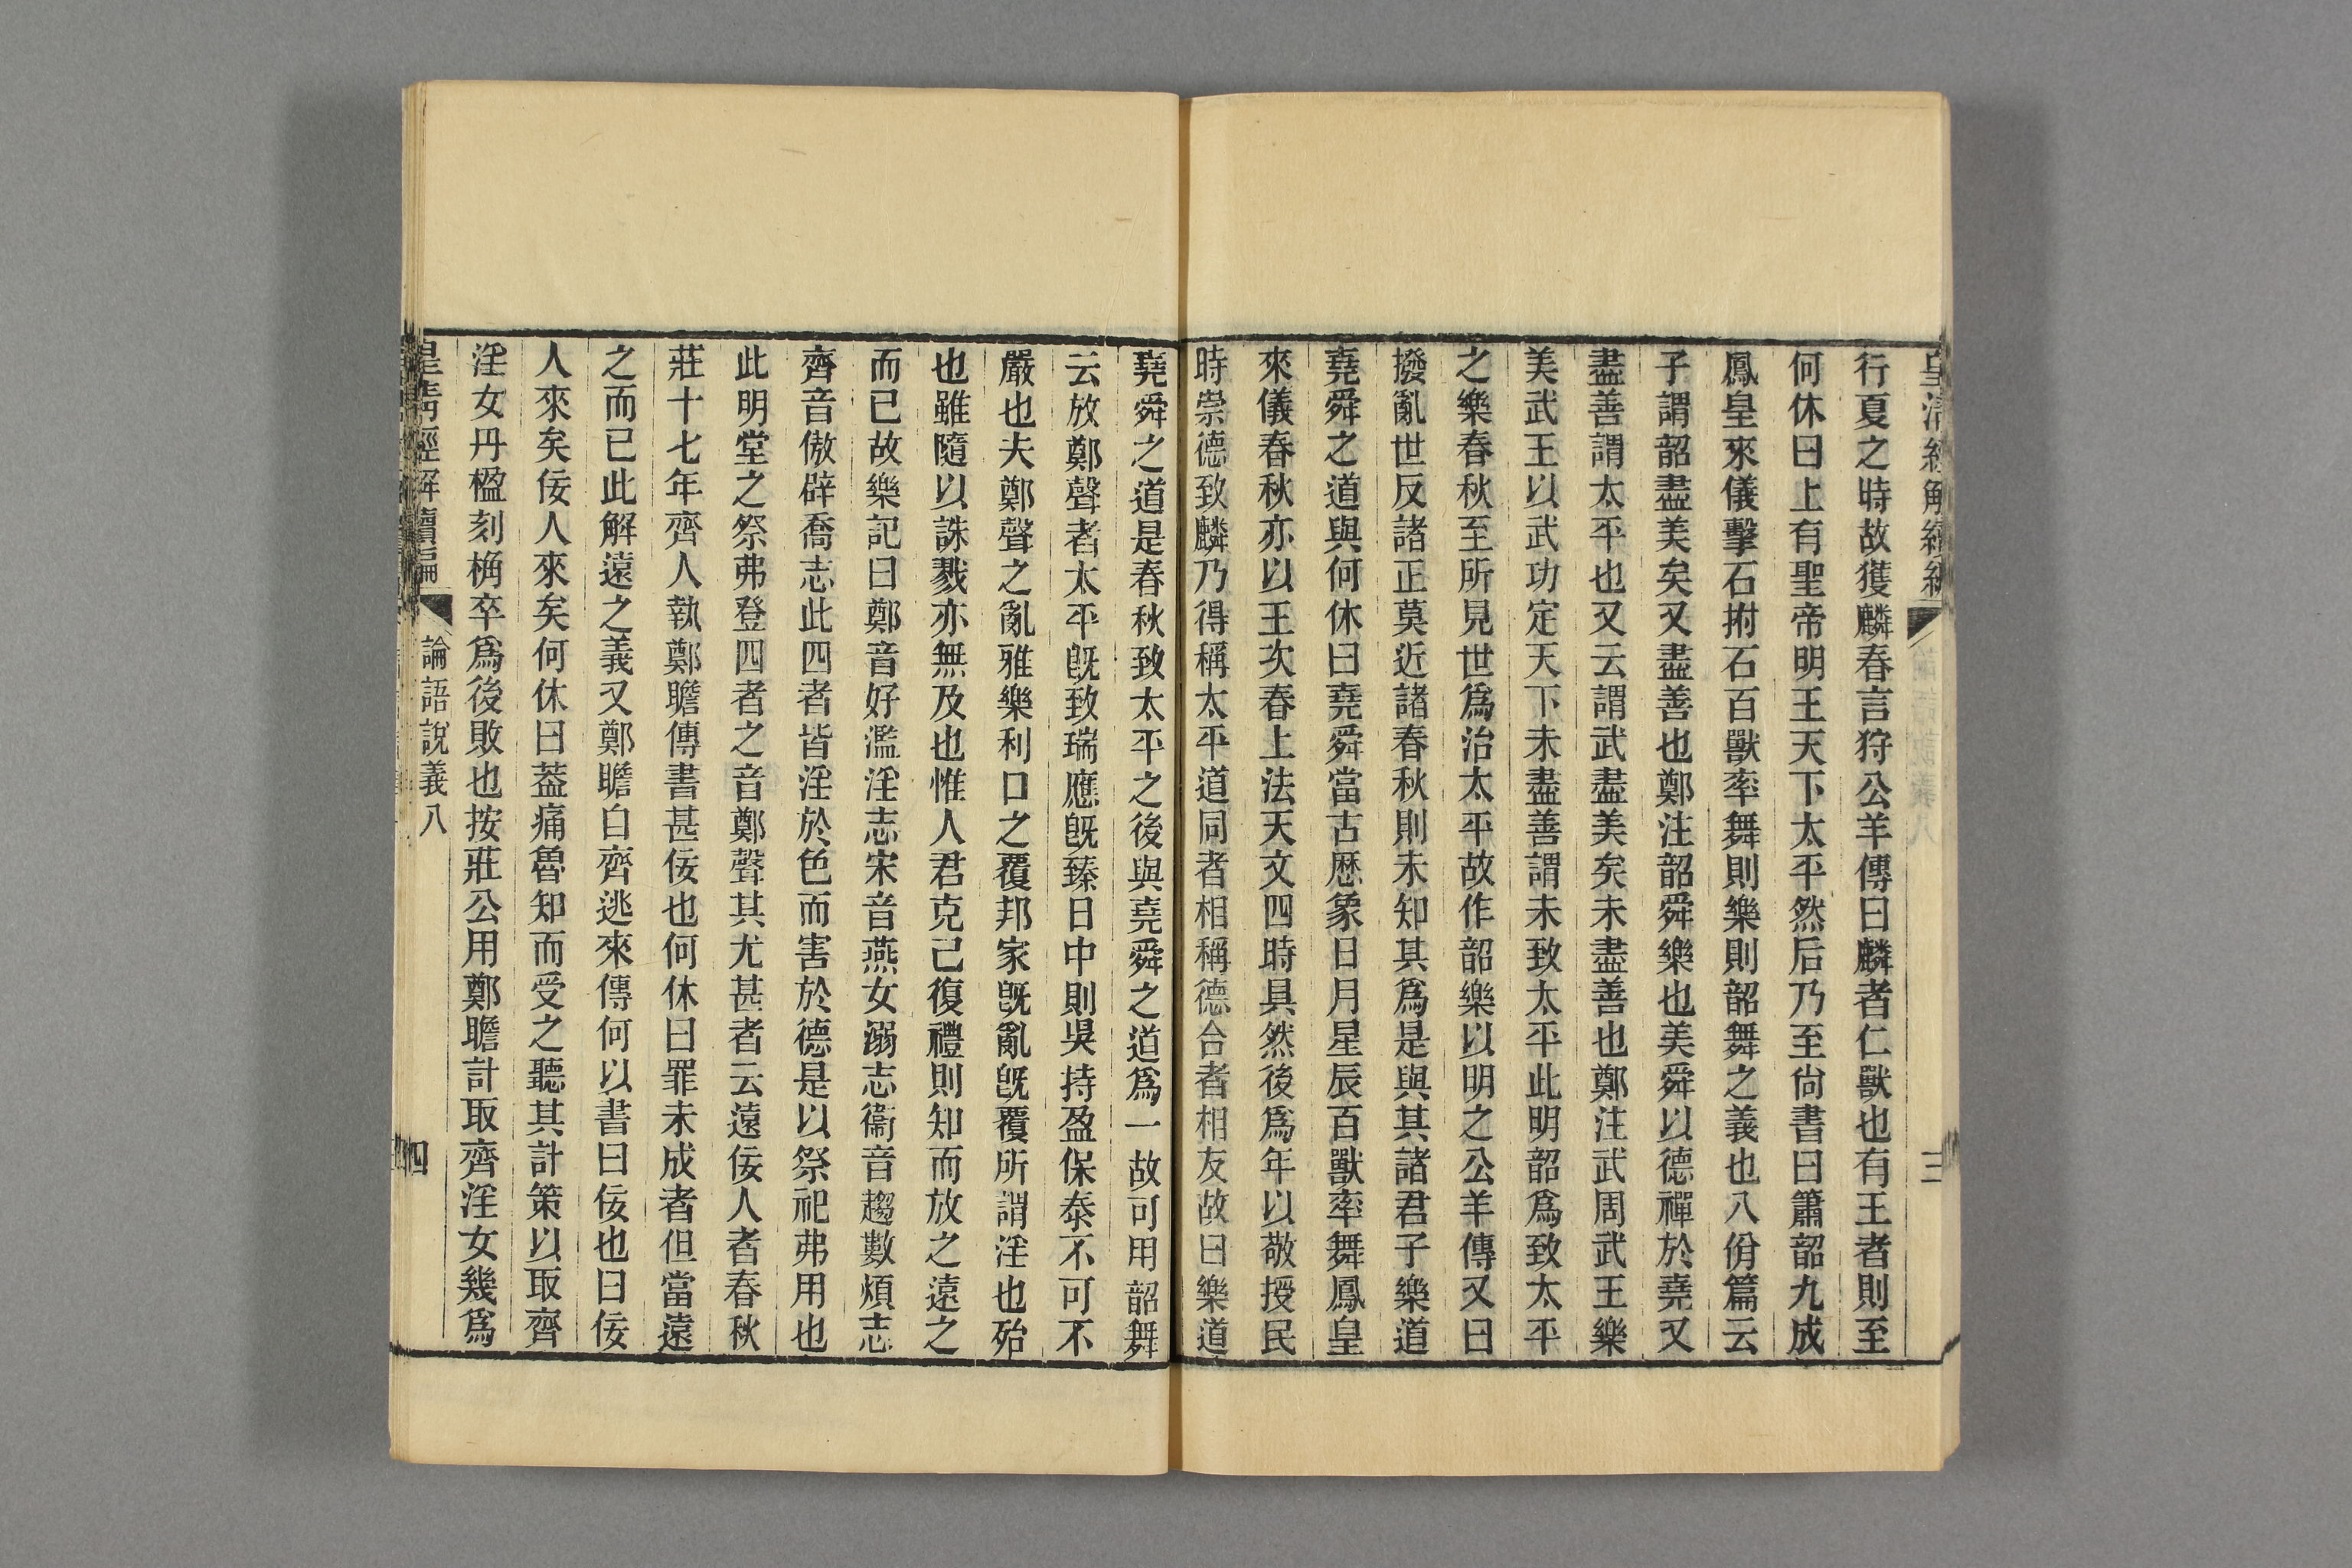 皇清經解續編
三
行夏之時故獲麟春言狩公羊傳曰麟者仁獸也有王者則至
何休曰上有聖帝明王天下太平然后乃至尙書曰簫韶九成
鳳皇來儀擊石拊石百獸率舞則樂則韶舞之義也八佾篇云
子謂韶盡美矣又盡善也鄭注韶舜樂也美舜以德禪於堯又
盡善謂太平也又云謂武盡美矣未盡善也鄭注武周武王樂
美武王以武功定天下未盡善謂未致太平此明韶爲致太平
之樂春秋至所見世爲治太平故作韶樂以明之公羊傳又曰
撥亂世反諸正莫近諸春秋則未知其爲是與其諸君子樂道
堯舜之道與何休曰堯舜當古歷象日月星辰百獸率舞鳳皇
來儀春秋亦以王次春上法天文四時具然後爲年以敬授民
時崇德致麟乃得稱太平道同者相稱德合者相友故曰樂道
堯舜之道是春秋致太平之後與堯舜之道爲一故可用韶舞
云放鄭聲者太平旣致瑞應旣臻日中則昊持盈保泰不可不
嚴也夫鄭聲之亂雅樂利口之覆邦家旣亂旣覆所謂淫也殆
也雖隨以誅戮亦無及也惟人君克己復禮則知而放之遠之
而已故樂記曰鄭音好濫淫志宋音燕女溺志衞音趨數煩志
齊音傲辟喬志此四者皆淫於色而害於德是以祭祀弗用也
此明堂之祭弗登四者之音鄭聲其尤甚者云遠佞人者春秋
莊十七年齊人執鄭瞻傳書甚佞也何休曰罪未成者但當遠
之而已此解遠之義又鄭瞻自齊逃來傳何以書曰佞也曰佞
人來矣佞人來矣何休曰蓋痛魯知而受之聽其計策以取齊
淫女丹楹刻桷卒爲後敗也按莊公用鄭瞻計取齊淫女幾爲
皇清經解續編
論語說義八
四